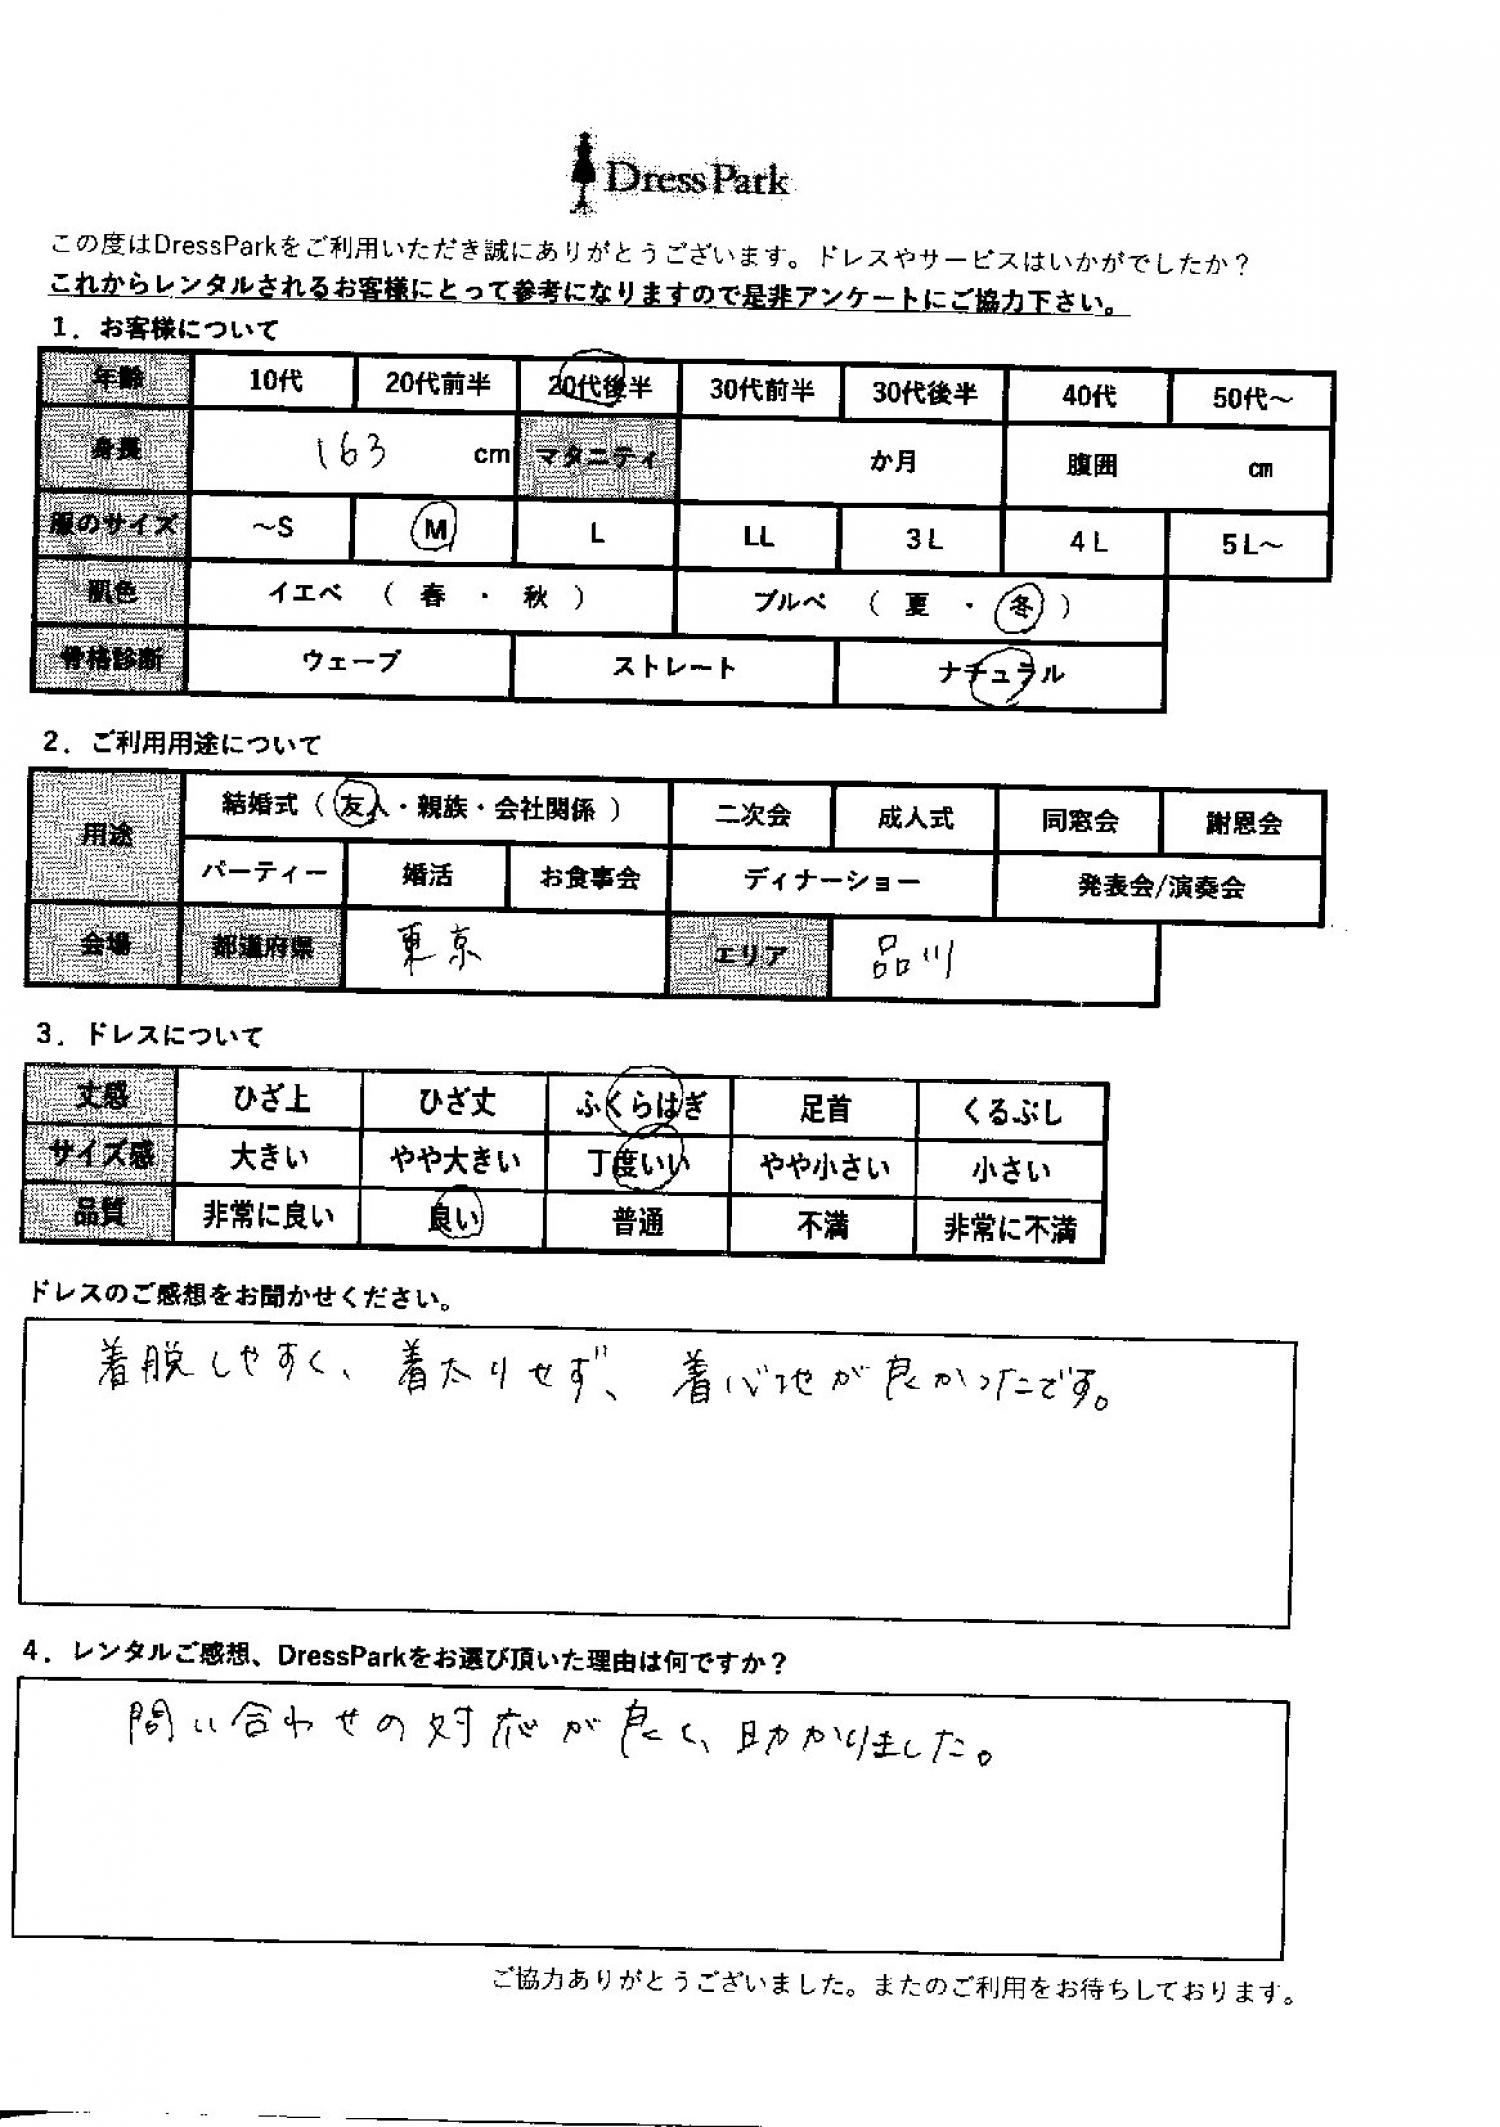 DressPark
この度はDressParkをご利用いただき誠にありがとうございます。ドレスやサービスはいかがでしたか？
これからレンタルされるお客様にとって参考になりますので是非アンケートにご協力下さい。
1．お客様について
年齢 10代 20代前半 20代後半 30代前半 30代後半 40代 50代～
身長 163 cm マタニティ か月 腹囲 cm
服のサイズ ～S M L LL 3L 4L 5L～
肌色 イエベ （ 春 ・ 秋 ） ブルベ （ 夏 ・ 冬 ）
骨格診断 ウェーブ ストレート ナチュラル
2．ご利用用途について
用途 結婚式（ 友人・親族・会社関係 ） 二次会 成人式 同窓会 謝恩会
パーティー 婚活 お食事会 ディナーショー 発表会/演奏会
会場 都道府県 東京 エリア 品川
3．ドレスについて
丈感 ひざ上 ひざ丈 ふくらはぎ 足首 くるぶし
サイズ感 大きい やや大きい 丁度いい やや小さい 小さい
品質 非常に良い 良い 普通 不満 非常に不満
ドレスのご感想をお聞かせください。
着脱しやすく、着太りせず、着心地が良かったです。
4．レンタルご感想、DressParkをお選び頂いた理由は何ですか？
問い合わせの対応が良く、助かりました。
ご協力ありがとうございました。またのご利用をお待ちしております。